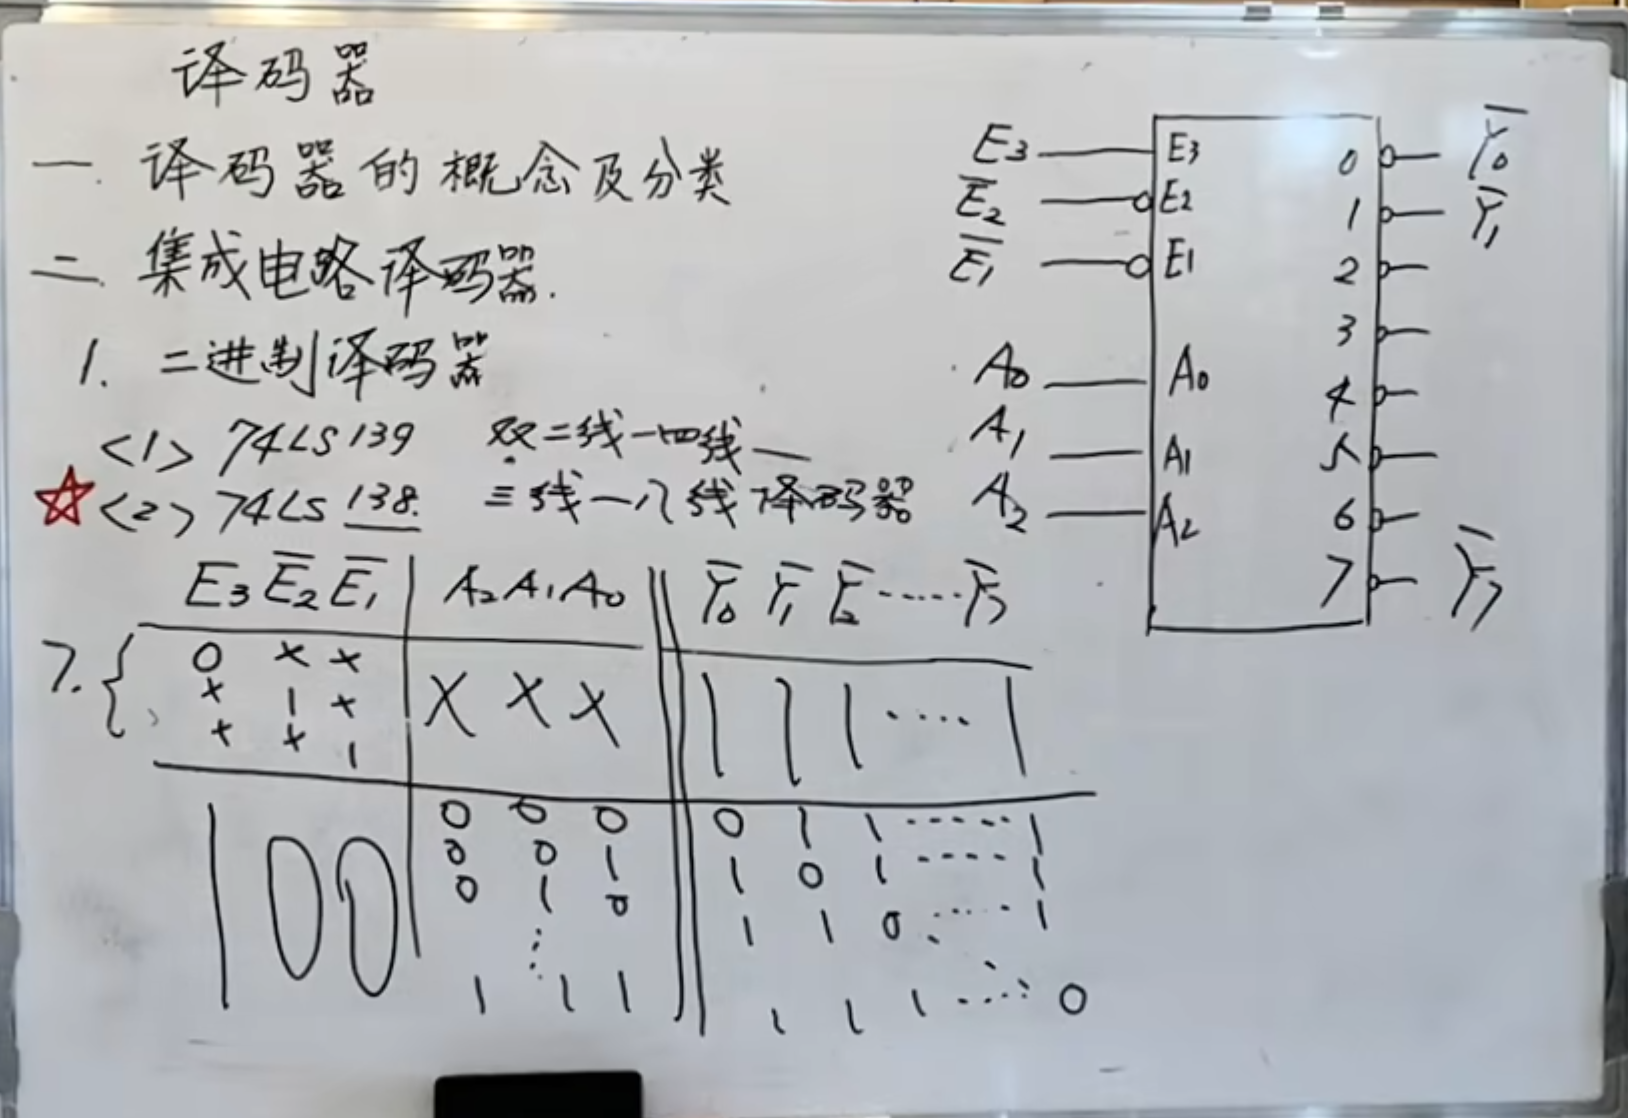 译码器
一. 译码器的概念及分类
二. 集成电路译码器.
1. 二进制译码器
<1> 74LS139 双二线一四线—
☆<2> 74LS138. 三线一八线译码器
E3 E̅2 E̅1 | A2 A1 A0 || Y̅0 Y̅1 Y̅2 ...... Y̅7
0 × × | × × × || 1 1 1 .... 1
7. { × 1 ×
× × 1
1 0 0 | 0 0 0 || 0 1 1 ...... 1
0 0 1 || 1 0 1 ..... 1
0 1 0 || 1 1 0 ..... 1
⋮
1 1 1 || 1 1 1 ..... 0
E3 E3 0 Y̅0
E̅2 E2 1 Y̅1
E̅1 E1 2
3
A0 A0 4
A1 A1 5
A2 A2 6
7 Y̅7